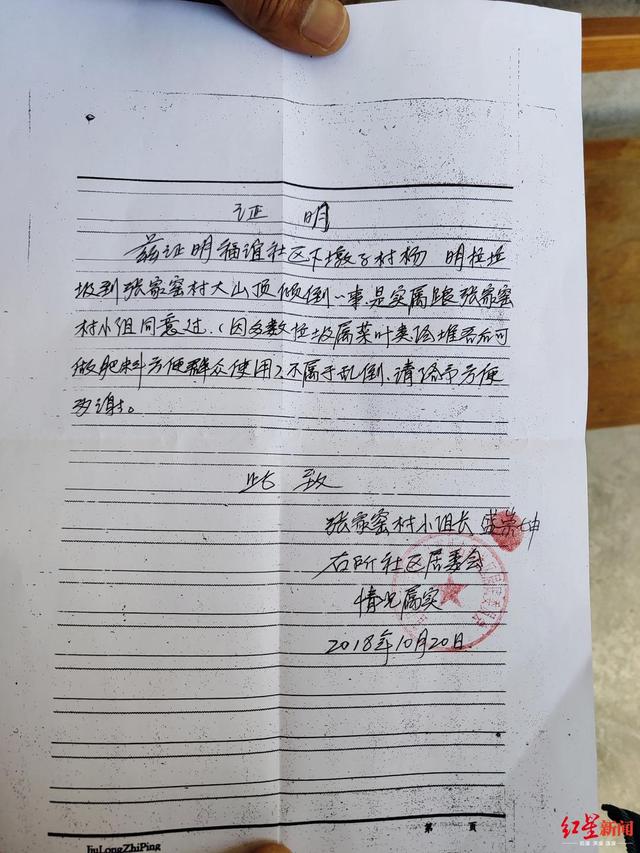 证 明
兹证明福谊社区下墩子村杨 明拉垃
圾到张家窑村大山顶倾倒一事是实属跟张家窑
村小组同意过.(因多数垃圾属菜叶类经堆否后可
做肥料方便群众使用)不属于乱倒.请给予方便
为谢。
此 致
张家窑村小组长 盛崇坤
右所社区居委会
情况属实
2018年10月20日.
JiuLongZhiPing
第 页
红星新闻